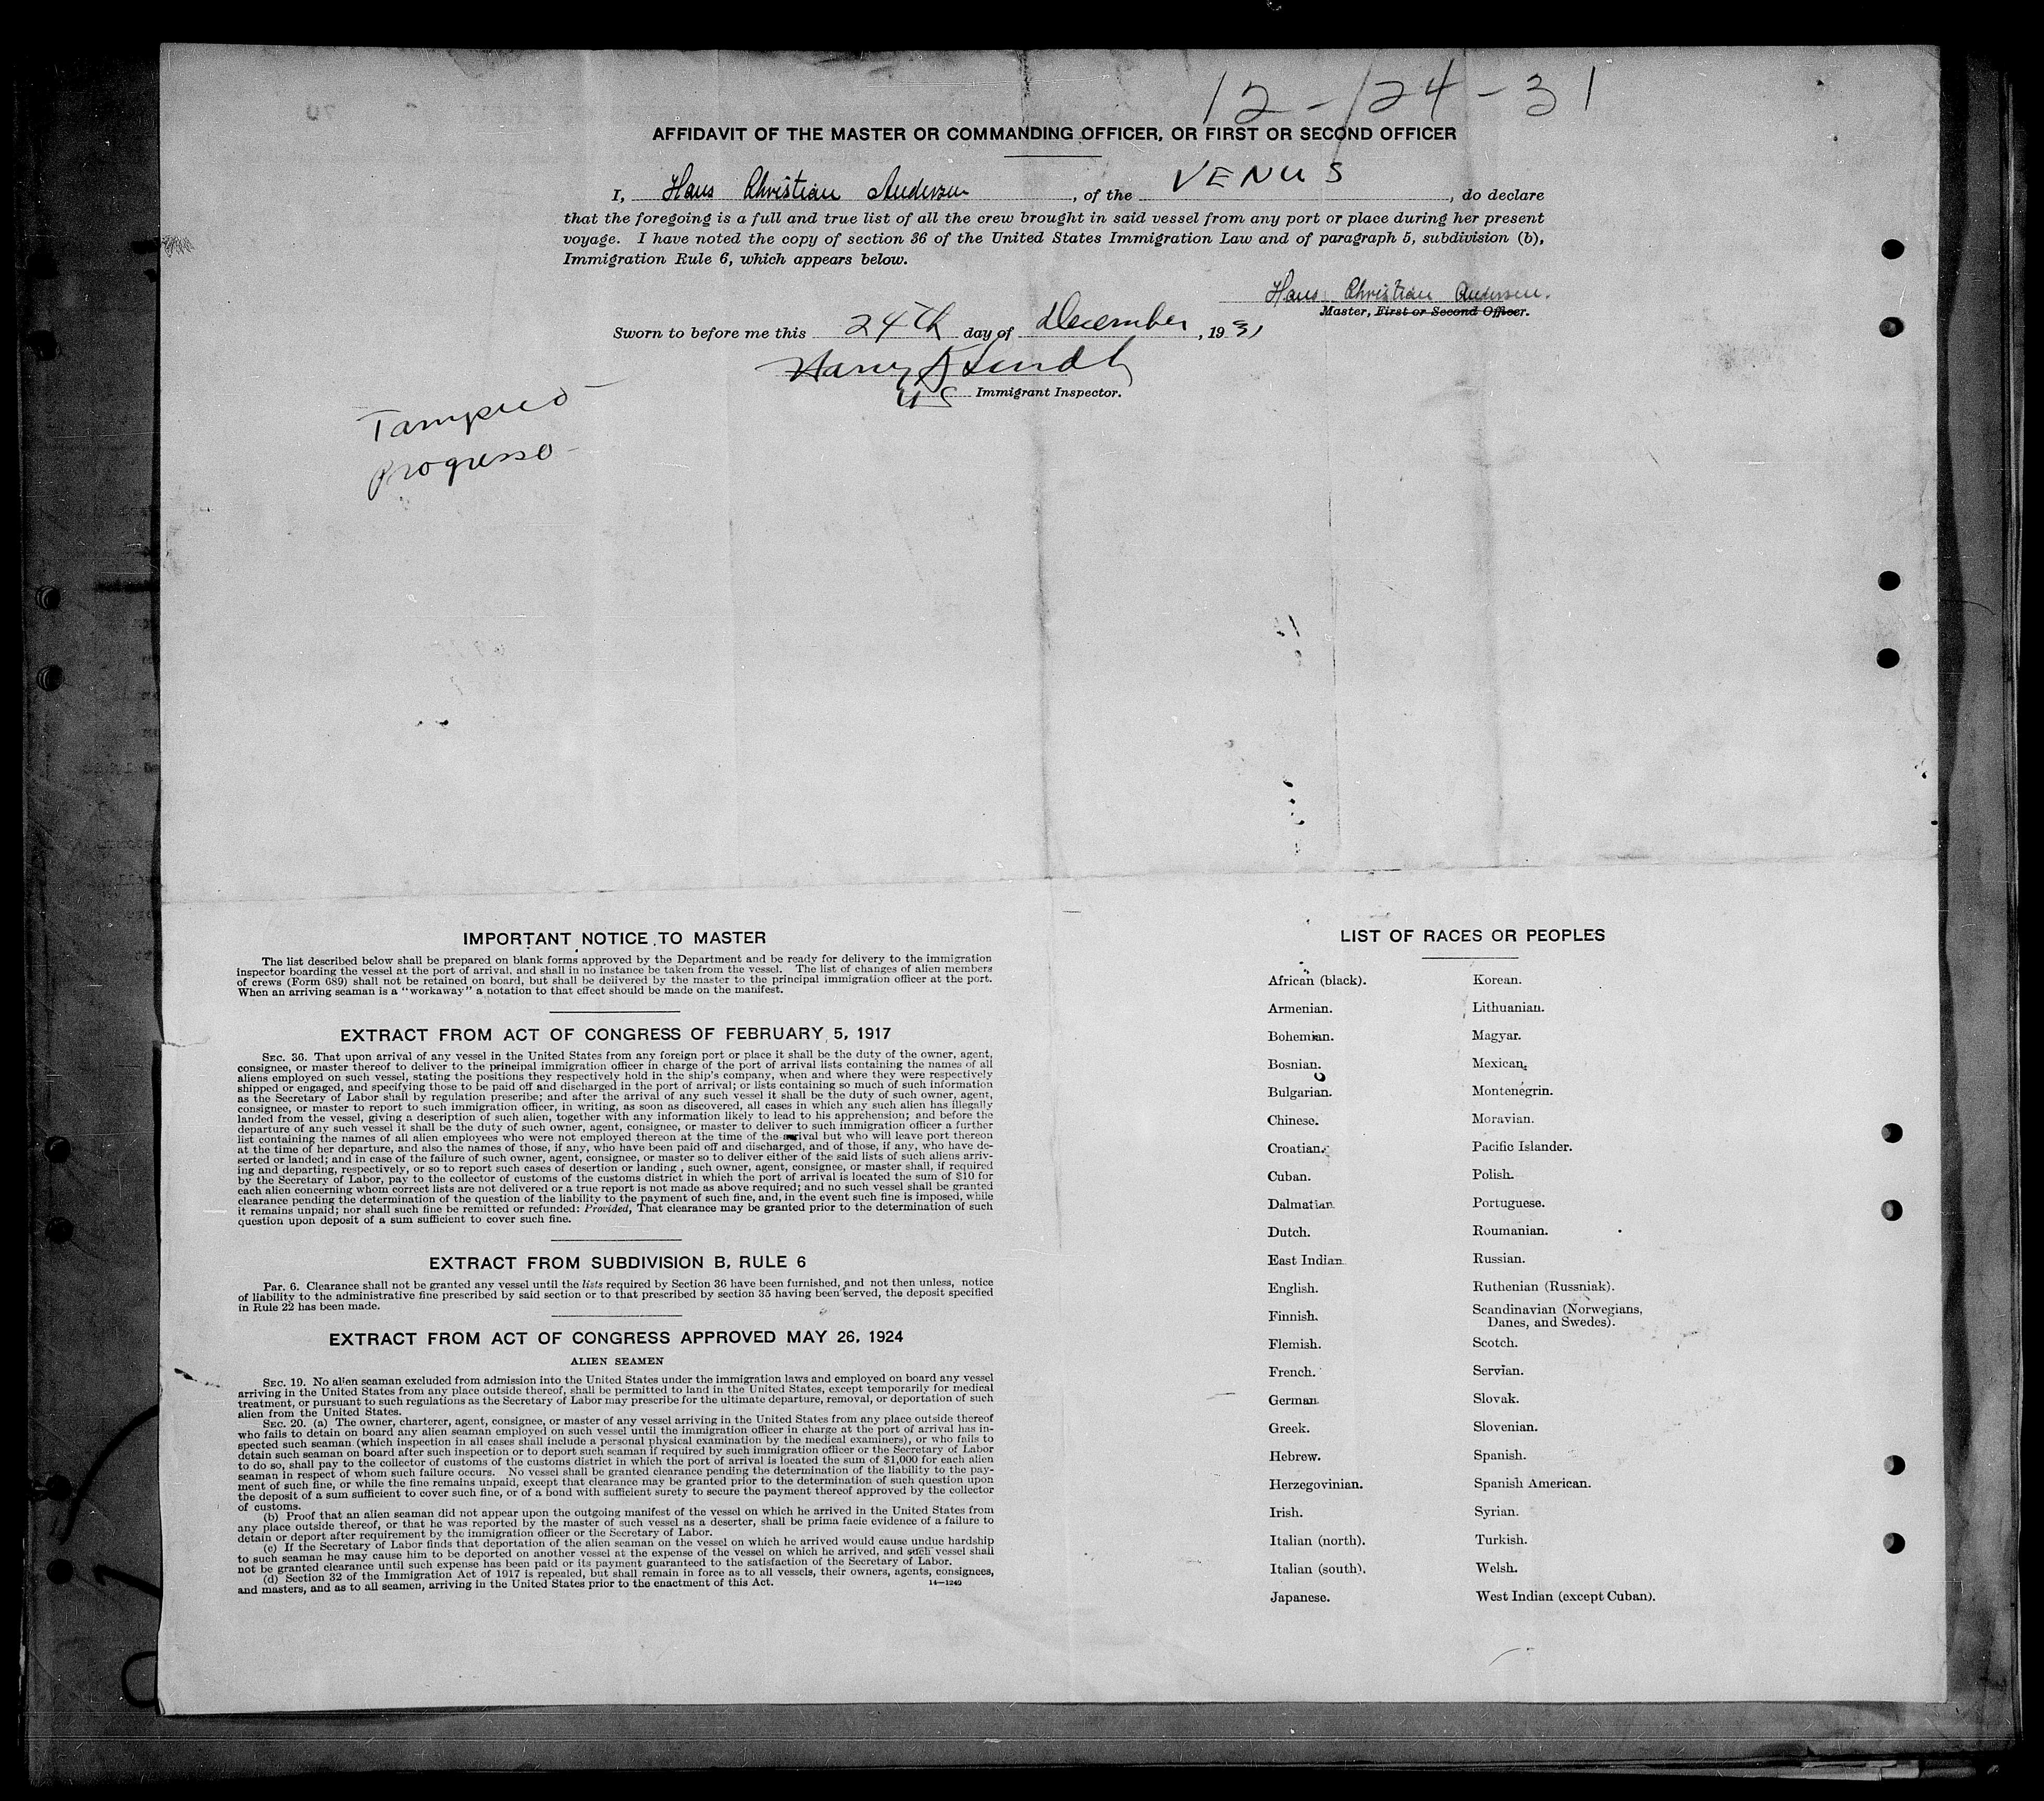 12-24-31
AFFIDAVIT OF THE MASTER OR COMMANDING OFFICER, OR FIRST OR SECOND OFFICER
I, Hans Christian Andersen, of the VENUS, do declare
that the foregoing is a full and true list of all the crew brought in said vessel from any port or place during her present
voyage. I have noted the copy of section 36 of the United States Immigration Law and of paragraph 5, subdivision (b),
Immigration Rule 6, which appears below.
Hans Christian Andersen.
Master, First or Second Officer.
Sworn to before me this 24th day of December, 1931
Harry
US Immigrant Inspector.
Tampico -
Progresso -
IMPORTANT NOTICE TO MASTER
The list described below shall be prepared on blank forms approved by the Department and be ready for delivery to the immigration
inspector boarding the vessel at the port of arrival, and shall in no instance be taken from the vessel. The list of changes of alien members
of crews (Form 689) shall not be retained on board, but shall be delivered by the master to the principal immigration officer at the port.
When an arriving seaman is a "workaway" a notation to that effect should be made on the manifest.
EXTRACT FROM ACT OF CONGRESS OF FEBRUARY 5, 1917
SEC. 36. That upon arrival of any vessel in the United States from any foreign port or place it shall be the duty of the owner, agent,
consignee, or master thereof to deliver to the principal immigration officer in charge of the port of arrival lists containing the names of all
aliens employed on such vessel, stating the positions they respectively hold in the ship's company, when and where they were respectively
shipped or engaged, and specifying those to be paid off and discharged in the port of arrival; or lists containing so much of such information
as the Secretary of Labor shall by regulation prescribe; and after the arrival of any such vessel it shall be the duty of such owner, agent,
consignee, or master to report to such immigration officer, in writing, as soon as discovered, all cases in which any such alien has illegally
landed from the vessel, giving a description of such alien, together with any information likely to lead to his apprehension; and before the
departure of any such vessel it shall be the duty of such owner, agent, consignee, or master to deliver to such immigration officer a further
list containing the names of all alien employees who were not employed thereon at the time of the arrival but who will leave port thereon
at the time of her departure, and also the names of those, if any, who have been paid off and discharged, and of those, if any, who have de-
serted or landed; and in case of the failure of such owner, agent, consignee, or master so to deliver either of the said lists of such aliens arriv-
ing and departing, respectively, or so to report such cases of desertion or landing, such owner, agent, consignee, or master shall, if required
by the Secretary of Labor, pay to the collector of customs of the customs district in which the port of arrival is located the sum of $10 for
each alien concerning whom correct lists are not delivered or a true report is not made as above required; and no such vessel shall be granted
clearance pending the determination of the question of the liability to the payment of such fine, and, in the event such fine is imposed, while
it remains unpaid; nor shall such fine be remitted or refunded: Provided, That clearance may be granted prior to the determination of such
question upon deposit of a sum sufficient to cover such fine.
EXTRACT FROM SUBDIVISION B, RULE 6
Par. 6. Clearance shall not be granted any vessel until the lists required by Section 36 have been furnished, and not then unless, notice
of liability to the administrative fine prescribed by said section or to that prescribed by section 35 having been served, the deposit specified
in Rule 22 has been made.
EXTRACT FROM ACT OF CONGRESS APPROVED MAY 26, 1924
ALIEN SEAMEN
SEC. 19. No alien seaman excluded from admission into the United States under the immigration laws and employed on board any vessel
arriving in the United States from any place outside thereof, shall be permitted to land in the United States, except temporarily for medical
treatment, or pursuant to such regulations as the Secretary of Labor may prescribe for the ultimate departure, removal, or deportation of such
alien from the United States.
SEC. 20. (a) The owner, charterer, agent, consignee, or master of any vessel arriving in the United States from any place outside thereof
who fails to detain on board any alien seaman employed on such vessel until the immigration officer in charge at the port of arrival has in-
spected such seaman (which inspection in all cases shall include a personal physical examination by the medical examiners), or who fails to
detain such seaman on board after such inspection or to deport such seaman if required by such immigration officer or the Secretary of Labor
to do so, shall pay to the collector of customs of the customs district in which the port of arrival is located the sum of $1,000 for each alien
seaman in respect of whom such failure occurs. No vessel shall be granted clearance pending the determination of the liability to the pay-
ment of such fine, or while the fine remains unpaid, except that clearance may be granted prior to the determination of such question upon
the deposit of a sum sufficient to cover such fine, or of a bond with sufficient surety to secure the payment thereof approved by the collector
of customs.
(b) Proof that an alien seaman did not appear upon the outgoing manifest of the vessel on which he arrived in the United States from
any place outside thereof, or that he was reported by the master of such vessel as a deserter, shall be prima facie evidence of a failure to
detain or deport after requirement by the immigration officer or the Secretary of Labor.
(c) If the Secretary of Labor finds that deportation of the alien seaman on the vessel on which he arrived would cause undue hardship
to such seaman he may cause him to be deported on another vessel at the expense of the vessel on which he arrived, and such vessel shall
not be granted clearance until such expense has been paid or its payment guaranteed to the satisfaction of the Secretary of Labor.
(d) Section 32 of the Immigration Act of 1917 is repealed, but shall remain in force as to all vessels, their owners, agents, consignees,
and masters, and as to all seamen, arriving in the United States prior to the enactment of this Act.
14—1240
LIST OF RACES OR PEOPLES
African (black).
Armenian.
Bohemian.
Bosnian.
Bulgarian.
Chinese.
Croatian.
Cuban.
Dalmatian.
Dutch.
East Indian.
English.
Finnish.
Flemish.
French.
German.
Greek.
Hebrew.
Herzegovinian.
Irish.
Italian (north).
Italian (south).
Japanese.
Korean.
Lithuanian.
Magyar.
Mexican.
Montenegrin.
Moravian.
Pacific Islander.
Polish.
Portuguese.
Roumanian.
Russian.
Ruthenian (Russniak).
Scandinavian (Norwegians,
Danes, and Swedes).
Scotch.
Servian.
Slovak.
Slovenian.
Spanish.
Spanish American.
Syrian.
Turkish.
Welsh.
West Indian (except Cuban).